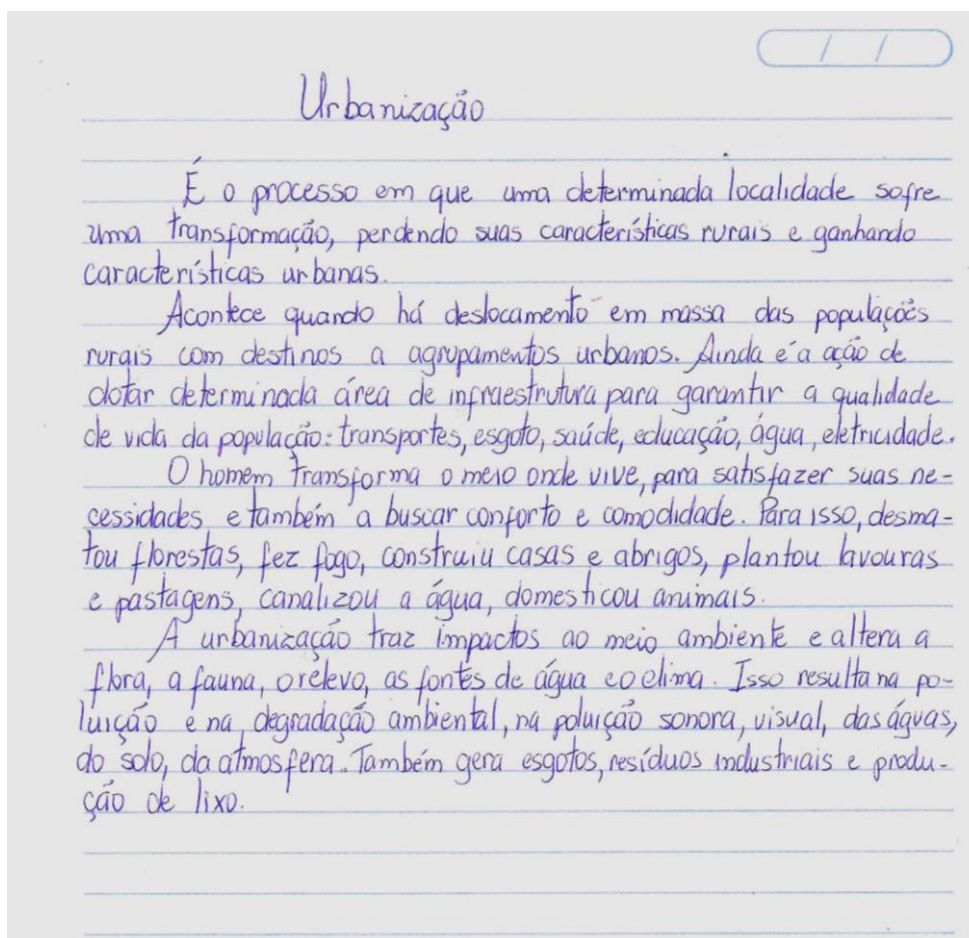 / /
Urbanização
É o processo em que uma determinada localidade sofre
uma transformação, perdendo suas características rurais e ganhando
características urbanas.
Acontece quando há deslocamento em massa das populações
rurais com destinos a agrupamentos urbanos. Ainda é a ação de
dotar determinada área de infraestrutura para garantir a qualidade
de vida da população: transportes, esgoto, saúde, educação, água, eletricidade.
O homem transforma o meio onde vive, para satisfazer suas ne-
cessidades e também a buscar conforto e comodidade. Para isso, desma-
tou florestas, fez fogo, construiu casas e abrigos, plantou lavouras
e pastagens, canalizou a água, domesticou animais.
A urbanização traz impactos ao meio ambiente e altera a
flora, a fauna, o relevo, as fontes de água e o clima. Isso resulta na po-
luição e na degradação ambiental, na poluição sonora, visual, das águas,
do solo, da atmosfera. Também gera esgotos, resíduos industriais e produ-
ção de lixo.